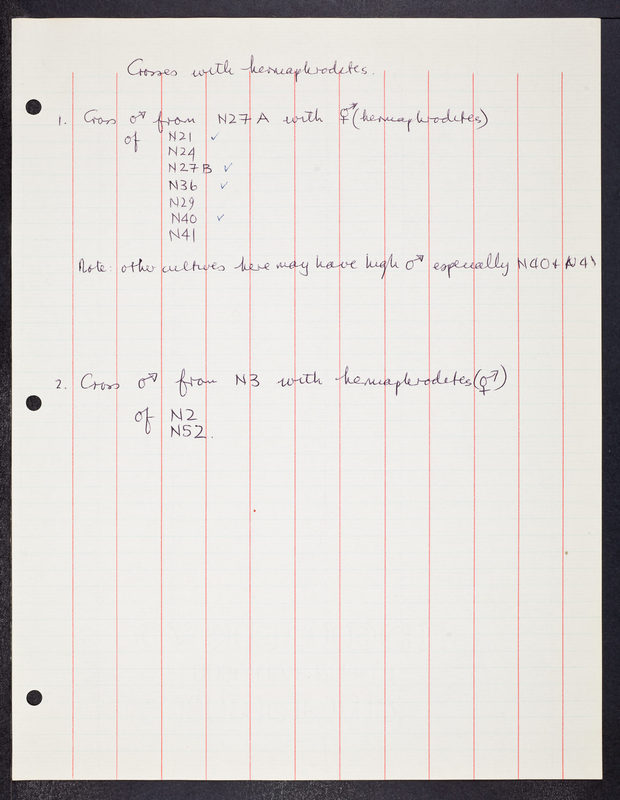 Crosses with hermaphrodites.
1. Cross ♂ from N27A with ⚥ (hermaphrodites)
of N21 ✓
N24
N27B ✓
N36 ✓
N29
N40 ✓
N41
Note: other cultures here may have high ♂ especially N40 + N41
2. Cross ♂ from N3 with hermaphrodites (⚥)
of N2
N52.